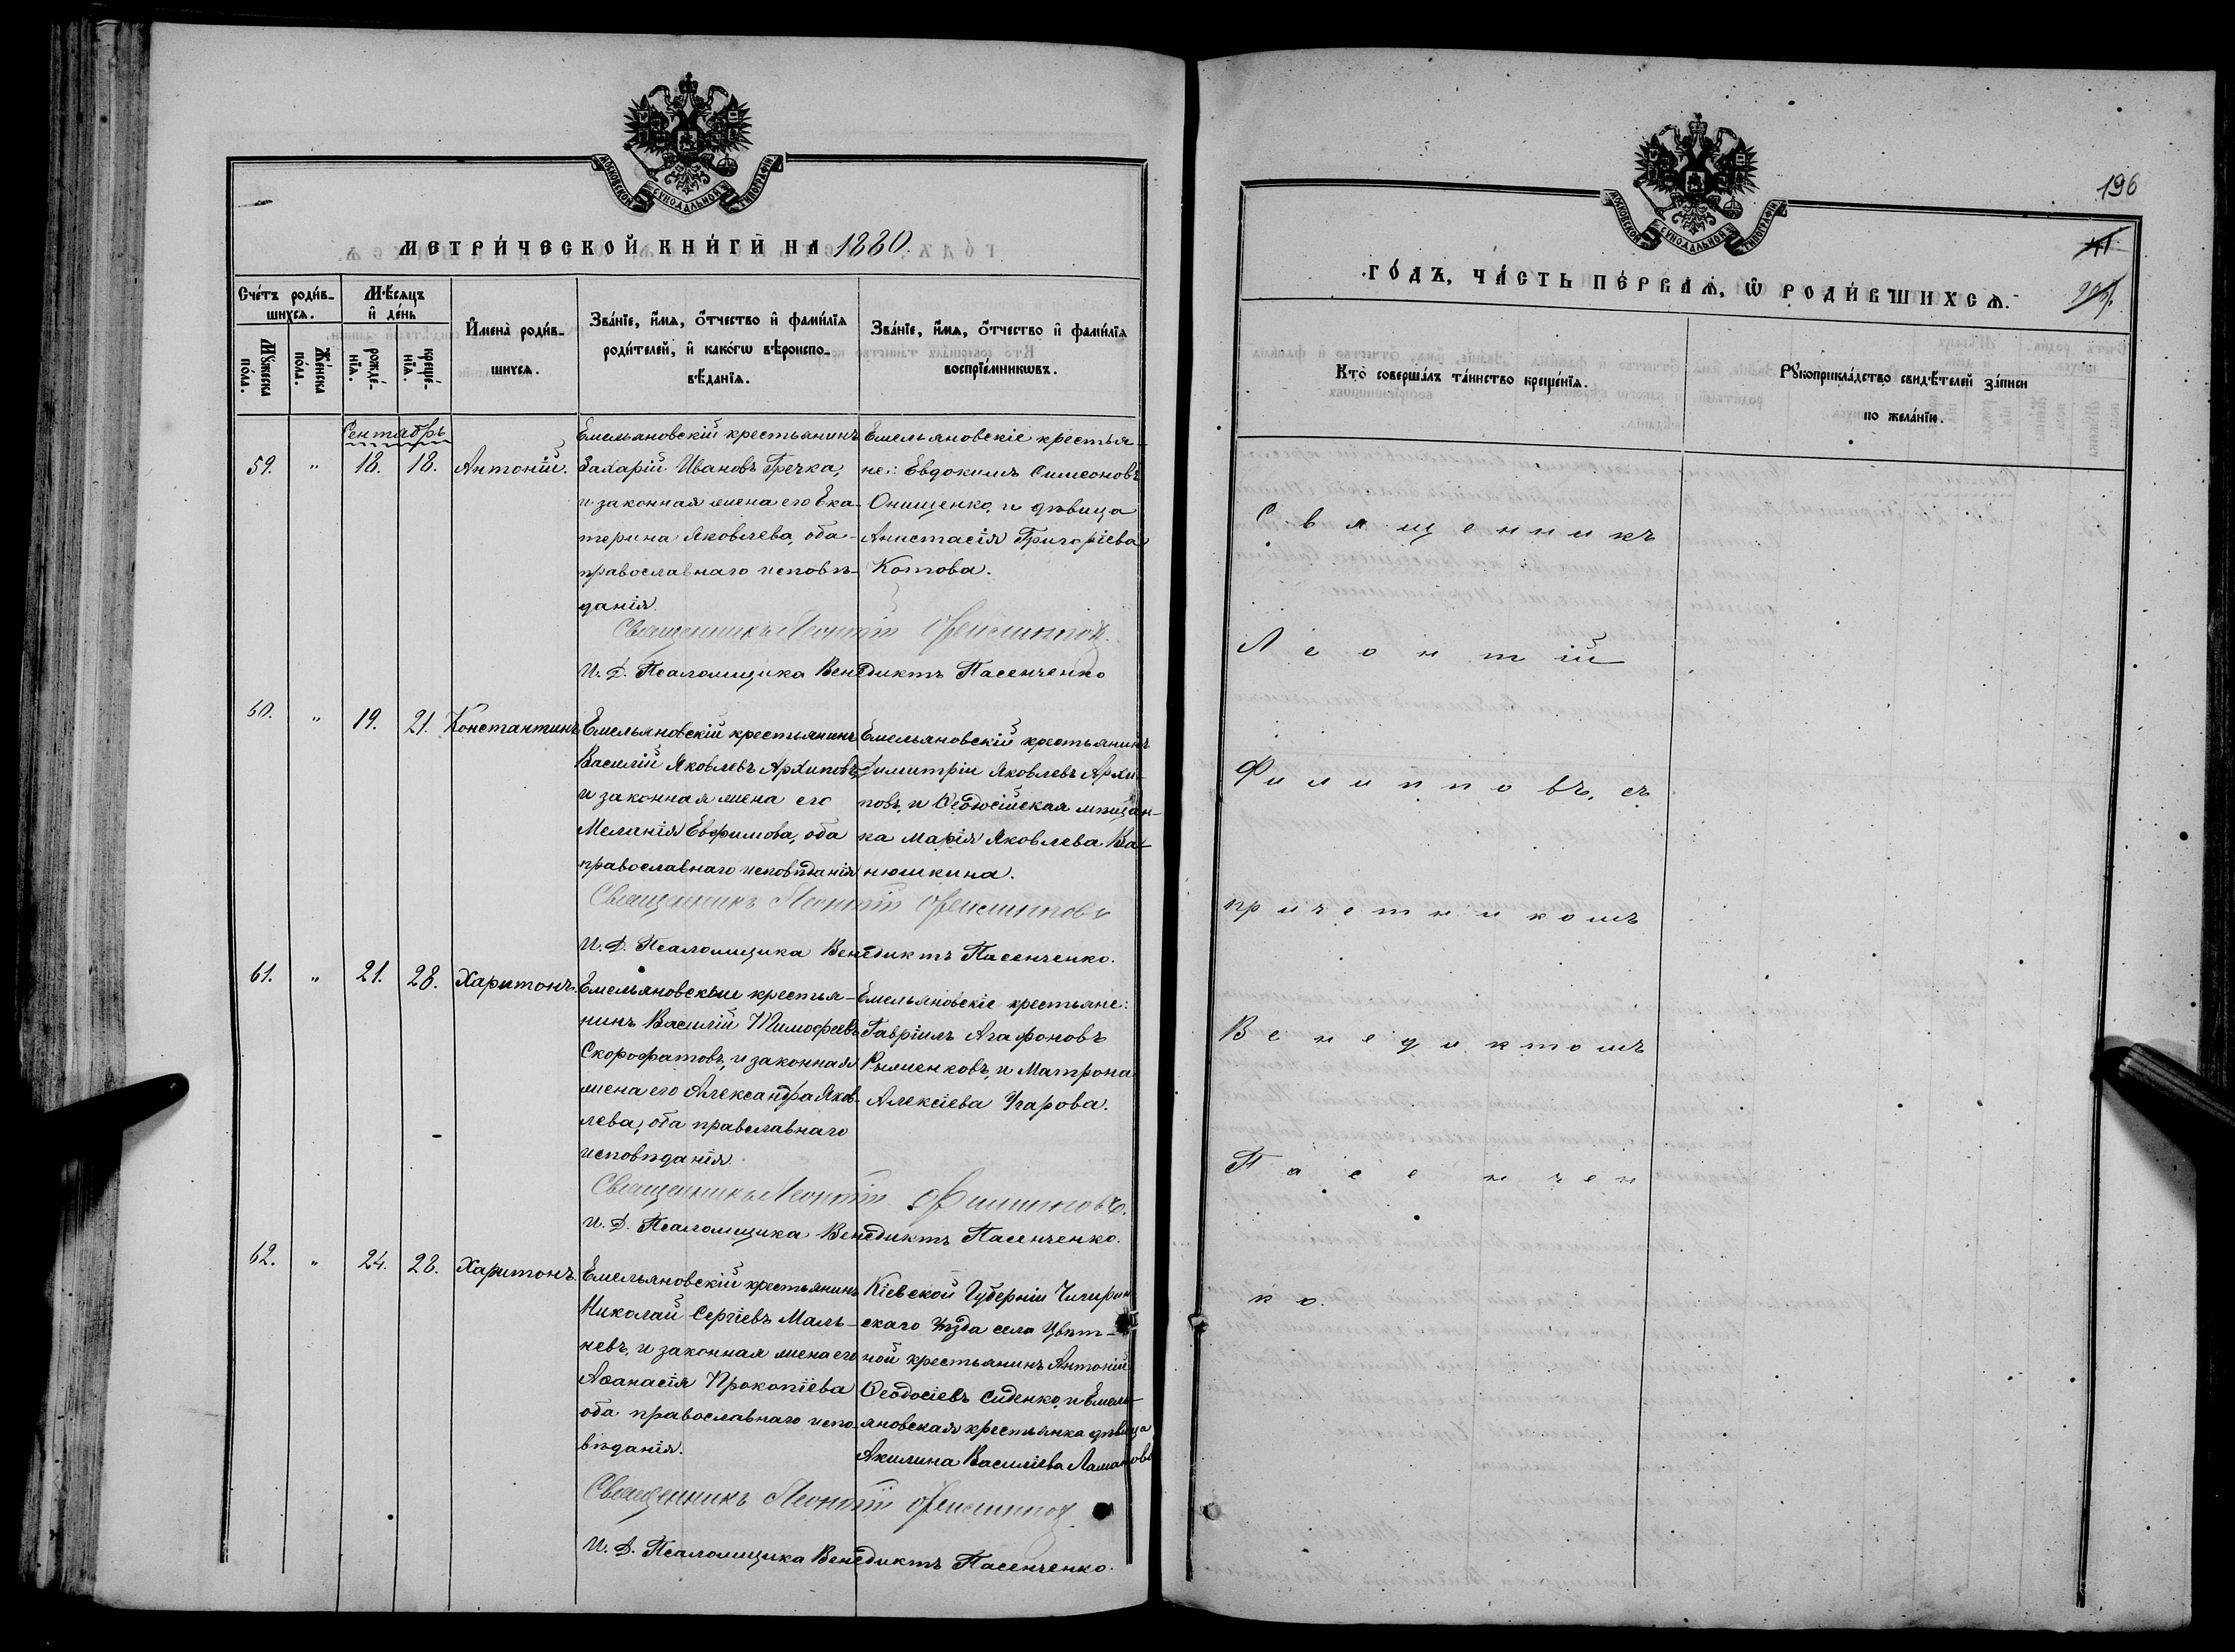 МОСКОВСКОЙ СУНОДАЛЬНОЙ ТИПОГРАФІИ
МЕТРИ́ЧЕСКОЙ КНИ́ГИ НА 1880.
Сче́тъ роди́в-
шихсѧ.
Мѣ́сѧцъ
и҆ де́нь
Мꙋ́жеска
по́ла.
Же́нска
по́ла.
рожде́-
нїѧ.
креще́-
нїѧ.
И҆мена̀ роди́в-
шихсѧ.
Зва́нїе, и҆́мѧ, ѻ҆́тчество и҆ фамѝлїѧ
роди́телей, и҆ како́гѡ вѣроиспо-
вѣ́данїѧ.
Зва́нїе, и҆́мѧ, ѻ҆́тчество и҆ фамѝлїѧ
воспрїе́мникѡвъ.
Сентябрь
59. " 18. 18. Антоній.
Емельяновскій крестьянинъ
Захарій Ивановъ Гречка,
и законная жена его Ека-
терина Яковлева, оба
православнаго исповѣ-
данія.
Емельяновскіе крестья-
не: Евдокимъ Симеоновъ
Онищенко, и дѣвица
Анастасія Григоріева
Котова.
Священникъ Леонтій Филипповъ.
И. Д. Псаломщика Венедиктъ Пасенченко
60. " 19. 21. Константинъ
Емельяновскій крестьянинъ
Василій Яковлевъ Архиповъ,
и законная жена его
Меланія Евфимова, оба
православнаго исповѣданія
Емельяновскій крестьянинъ
Димитрій Яковлевъ Архи-
повъ, и Ѳеодосійская мѣщан-
ка Марія Яковлева Ва-
нюшкина.
Священникъ Леонтій Филипповъ
И. Д. Псаломщика Венедиктъ Пасенченко.
61. " 21. 28. Харитонъ.
Емельяновскій крестья-
нинъ Василій Тимофеевъ
Скорофатовъ, и законная
жена его Александра Яков-
лева, оба православнаго
исповѣданія.
Емельяновскіе крестьяне:
Гавріилъ Агафоновъ
и Матрона
Алексіева Угарова.
Священникъ Леонтій Филипповъ.
И. Д. Псаломщика Венедиктъ Пасенченко.
62. " 24. 28. Харитонъ.
Емельяновскій крестьянинъ
Николай Сергіевъ Маль-
невъ, и законная жена его
Аѳанасія Прокопіева
оба православнаго испо-
вѣданія.
Кіевской Губерніи Чигирин
скаго Уѣзда села Цвѣт-
ной крестьянинъ Антоній
Ѳеодосіевъ Сиденко, и Емель-
яновская крестьянка дѣвица
Акилина Василіева
Священникъ Леонтій Филипповъ
И. Д. Псаломщика Венедиктъ Пасенченко.
196
МОСКОВСКОЙ СУНОДАЛЬНОЙ ТИПОГРАФІИ
ГО́ДЪ, ЧА́СТЬ ПЕ́РВАѦ, Ѡ҆ РОДИ́ВШИХСѦ.
Кто̀ соверша́лъ та́инство креще́нїѧ.
Рꙋкоприкла́дство свидѣ́телей за́писи
по жела́нїю.
Священникъ
Леонтій
Филипповъ, съ
причетникомъ
Венедиктомъ
Пасенчен
ко.